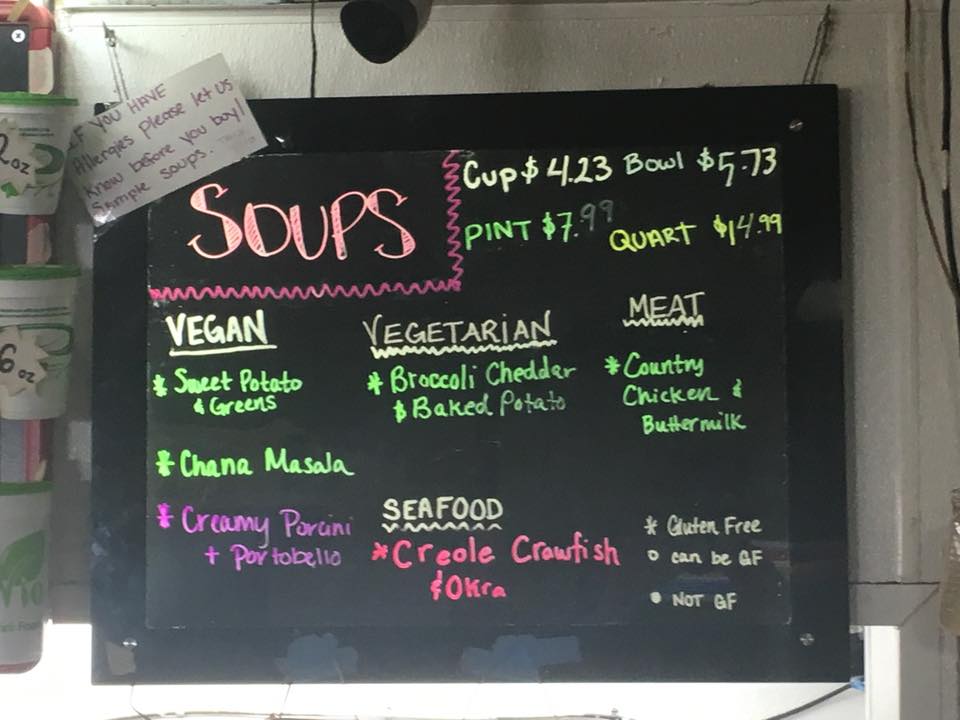 IF YOU HAVE
Allergies please let us
know before you buy!
Sample soups.
2 oz
6 oz
SOUPS
Cup $ 4.23 Bowl $5.73
PINT $7.99 QUART $14.99
VEGAN
* Sweet Potato
& Greens
* Chana Masala
* Creamy Porcini
+ Portobello
VEGETARIAN
* Broccoli Cheddar
& Baked Potato
MEAT
* Country
Chicken &
Buttermilk
SEAFOOD
* Creole Crawfish
& Okra
* Gluten Free
○ can be GF
● NOT GF